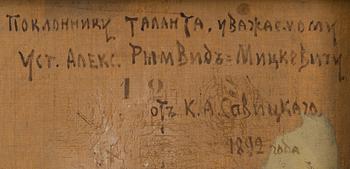 Поклоннику таланта, уважаемому
Уст. Алекс. Рымвидъ=Мицкевичу
12
отъ К. А. Савицкаго
1892 года